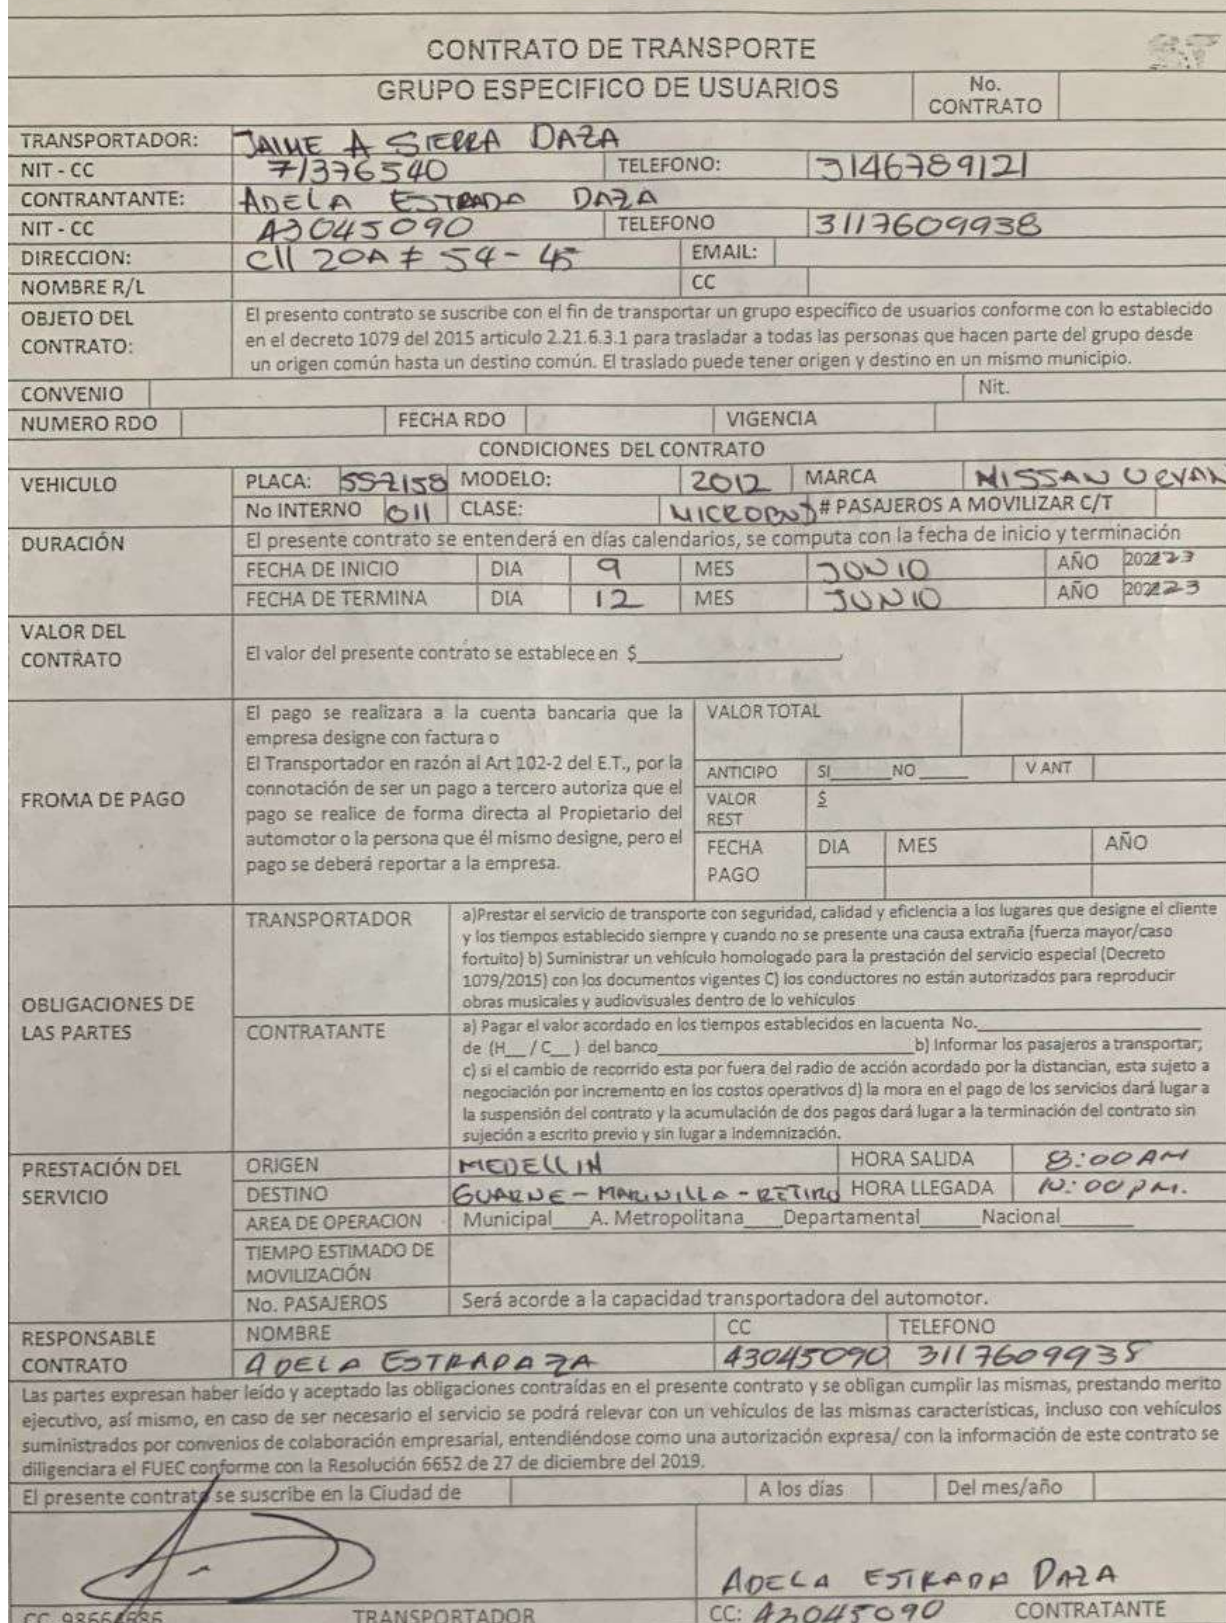 CONTRATO DE TRANSPORTE
GRUPO ESPECIFICO DE USUARIOS No. CONTRATO
TRANSPORTADOR: JAIME A SIERRA DAZA
NIT - CC 71376540 TELEFONO: 3146789121
CONTRANTANTE: ADELA ESTRADA DAZA
NIT - CC 43045090 TELEFONO 3117609938
DIRECCION: Cll 20A # 54 - 45 EMAIL:
NOMBRE R/L CC
OBJETO DEL CONTRATO: El presento contrato se suscribe con el fin de transportar un grupo específico de usuarios conforme con lo establecido
en el decreto 1079 del 2015 articulo 2.21.6.3.1 para trasladar a todas las personas que hacen parte del grupo desde
un origen común hasta un destino común. El traslado puede tener origen y destino en un mismo municipio.
CONVENIO Nit.
NUMERO RDO FECHA RDO VIGENCIA
CONDICIONES DEL CONTRATO
VEHICULO PLACA: MODELO: 2012 MARCA NISSAN URVAN
No INTERNO 011 CLASE: MICROBUS # PASAJEROS A MOVILIZAR C/T
DURACIÓN El presente contrato se entenderá en días calendarios, se computa con la fecha de inicio y terminación
FECHA DE INICIO DIA 9 MES JUNIO AÑO 2023
FECHA DE TERMINA DIA 12 MES JUNIO AÑO 2023
VALOR DEL CONTRATO El valor del presente contrato se establece en $
FROMA DE PAGO El pago se realizara a la cuenta bancaria que la
empresa designe con factura o
El Transportador en razón al Art 102-2 del E.T., por la
connotación de ser un pago a tercero autoriza que el
pago se realice de forma directa al Propietario del
automotor o la persona que él mismo designe, pero el
pago se deberá reportar a la empresa.
VALOR TOTAL
ANTICIPO SI____NO____ V ANT
VALOR REST $
FECHA PAGO DIA MES AÑO
OBLIGACIONES DE LAS PARTES
TRANSPORTADOR a)Prestar el servicio de transporte con seguridad, calidad y eficiencia a los lugares que designe el cliente
y los tiempos establecido siempre y cuando no se presente una causa extraña (fuerza mayor/caso
fortuito) b) Suministrar un vehículo homologado para la prestación del servicio especial (Decreto
1079/2015) con los documentos vigentes C) los conductores no están autorizados para reproducir
obras musicales y audiovisuales dentro de lo vehículos
CONTRATANTE a) Pagar el valor acordado en los tiempos establecidos en la cuenta No.____
de (H__ / C__ ) del banco____b) Informar los pasajeros a transportar;
c) si el cambio de recorrido esta por fuera del radio de acción acordado por la distancian, esta sujeto a
negociación por incremento en los costos operativos d) la mora en el pago de los servicios dará lugar a
la suspensión del contrato y la acumulación de dos pagos dará lugar a la terminación del contrato sin
sujeción a escrito previo y sin lugar a indemnización.
PRESTACIÓN DEL SERVICIO
ORIGEN MEDELLIN HORA SALIDA 8:00 AM
DESTINO GUARNE - MARINILLA - RETIRO HORA LLEGADA 10:00 PM.
AREA DE OPERACION Municipal___A. Metropolitana___Departamental____Nacional____
TIEMPO ESTIMADO DE MOVILIZACIÓN
No. PASAJEROS Será acorde a la capacidad transportadora del automotor.
RESPONSABLE CONTRATO
NOMBRE CC TELEFONO
ADELA ESTRADAZA 43045090 3117609938
Las partes expresan haber leído y aceptado las obligaciones contraídas en el presente contrato y se obligan cumplir las mismas, prestando merito
ejecutivo, así mismo, en caso de ser necesario el servicio se podrá relevar con un vehículos de las mismas características, incluso con vehículos
suministrados por convenios de colaboración empresarial, entendiéndose como una autorización expresa/ con la información de este contrato se
diligenciara el FUEC conforme con la Resolución 6652 de 27 de diciembre del 2019.
El presente contrato se suscribe en la Ciudad de A los días Del mes/año
ADELA ESTRADA DAZA
CC TRANSPORTADOR CC: 43045090 CONTRATANTE